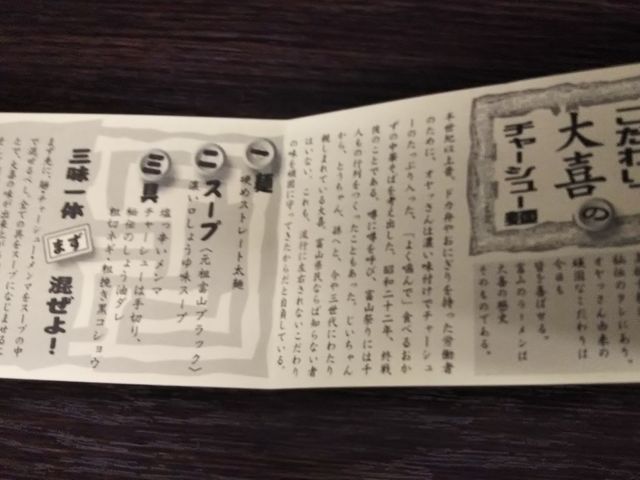 こだわり
大喜の
チャーシュー麺
秘伝のタレにあり。
オヤッさん由来の
頑固なこだわりは
今日も
皆を喜ばせる。
富山のラーメンは
大喜の歴史
そのものである。
半世紀以上昔、ドカ弁やおにぎりを持った労働者
のために、オヤッさんは濃い味付けでチャーシュ
ーのたっぷり入った、「よく噛んで」食べるおか
ずの中華そばを考え出した。昭和二十二年、終戦
後のことである。噂に噂を呼び、富山祭りには千
人もの行列をつくったこともあった。じいちゃん
から、とうちゃん、孫へと、今や三世代にわたり
親しまれている大喜。富山県民ならば知らない者
はいない。これも、流行に左右されないこだわり
の味を頑固に守ってきたからだと自負している。
一 麺
硬めストレート太麺
二 スープ〈元祖富山ブラック〉
濃い口しょうゆ味スープ
三 具
塩っ辛いメンマ
チャーシューは手切り、
秘伝のしょう油ダレ
粗切ネギ・粗挽き黒コショウ
三味一体
まず 混ぜよ!
まず先に、麺チャーシュー・メンマをスープの中
で混ぜるべし。全ての具をスープになじませるこ
とで、大喜の味が出来上がり